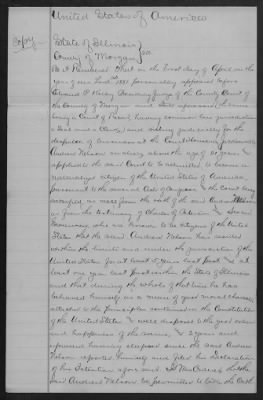 United States of America
Copy
State of Illinois
County of Morgan
Be it Remembered that on the First day of April in the
year of our Lord 1881 personally appeared before
Edward P. Kirby Presiding Judge of the County Court of
the County of Morgan and State aforesaid the same
being a Court of Record having common law jurisdiction
a Seal and a Clerk and sitting judicially for the
despatch of
Andrew Nelson an alien above the age of 21 years &
applied to the said Court to be admitted to become a
naturalized citizen of the United States of America
pursuant to the several Acts of Congress & the Court being
satisfied as well from the oath of the said Andrew Nelson
as from the testimony of Charles
who are known to be citizens of the United
States that the said Andrew Nelson has resided
within the limits and under the jurisdiction of the
United States for at least 5 years last past and at
least one year last past within the State of Illinois
and that during the whole of that time he has
behaved himself as a man of good moral character
attached to the principles contained in the Constitution
of the United States & well disposed to the good order
and happiness of the same, & 2 years and
upward having elapsed since the said Andrew
Nelson reported himself and filed his Declaration
of his Intention aforesaid It was Ordered that the
said Andrew Nelson be permitted to take the Oath